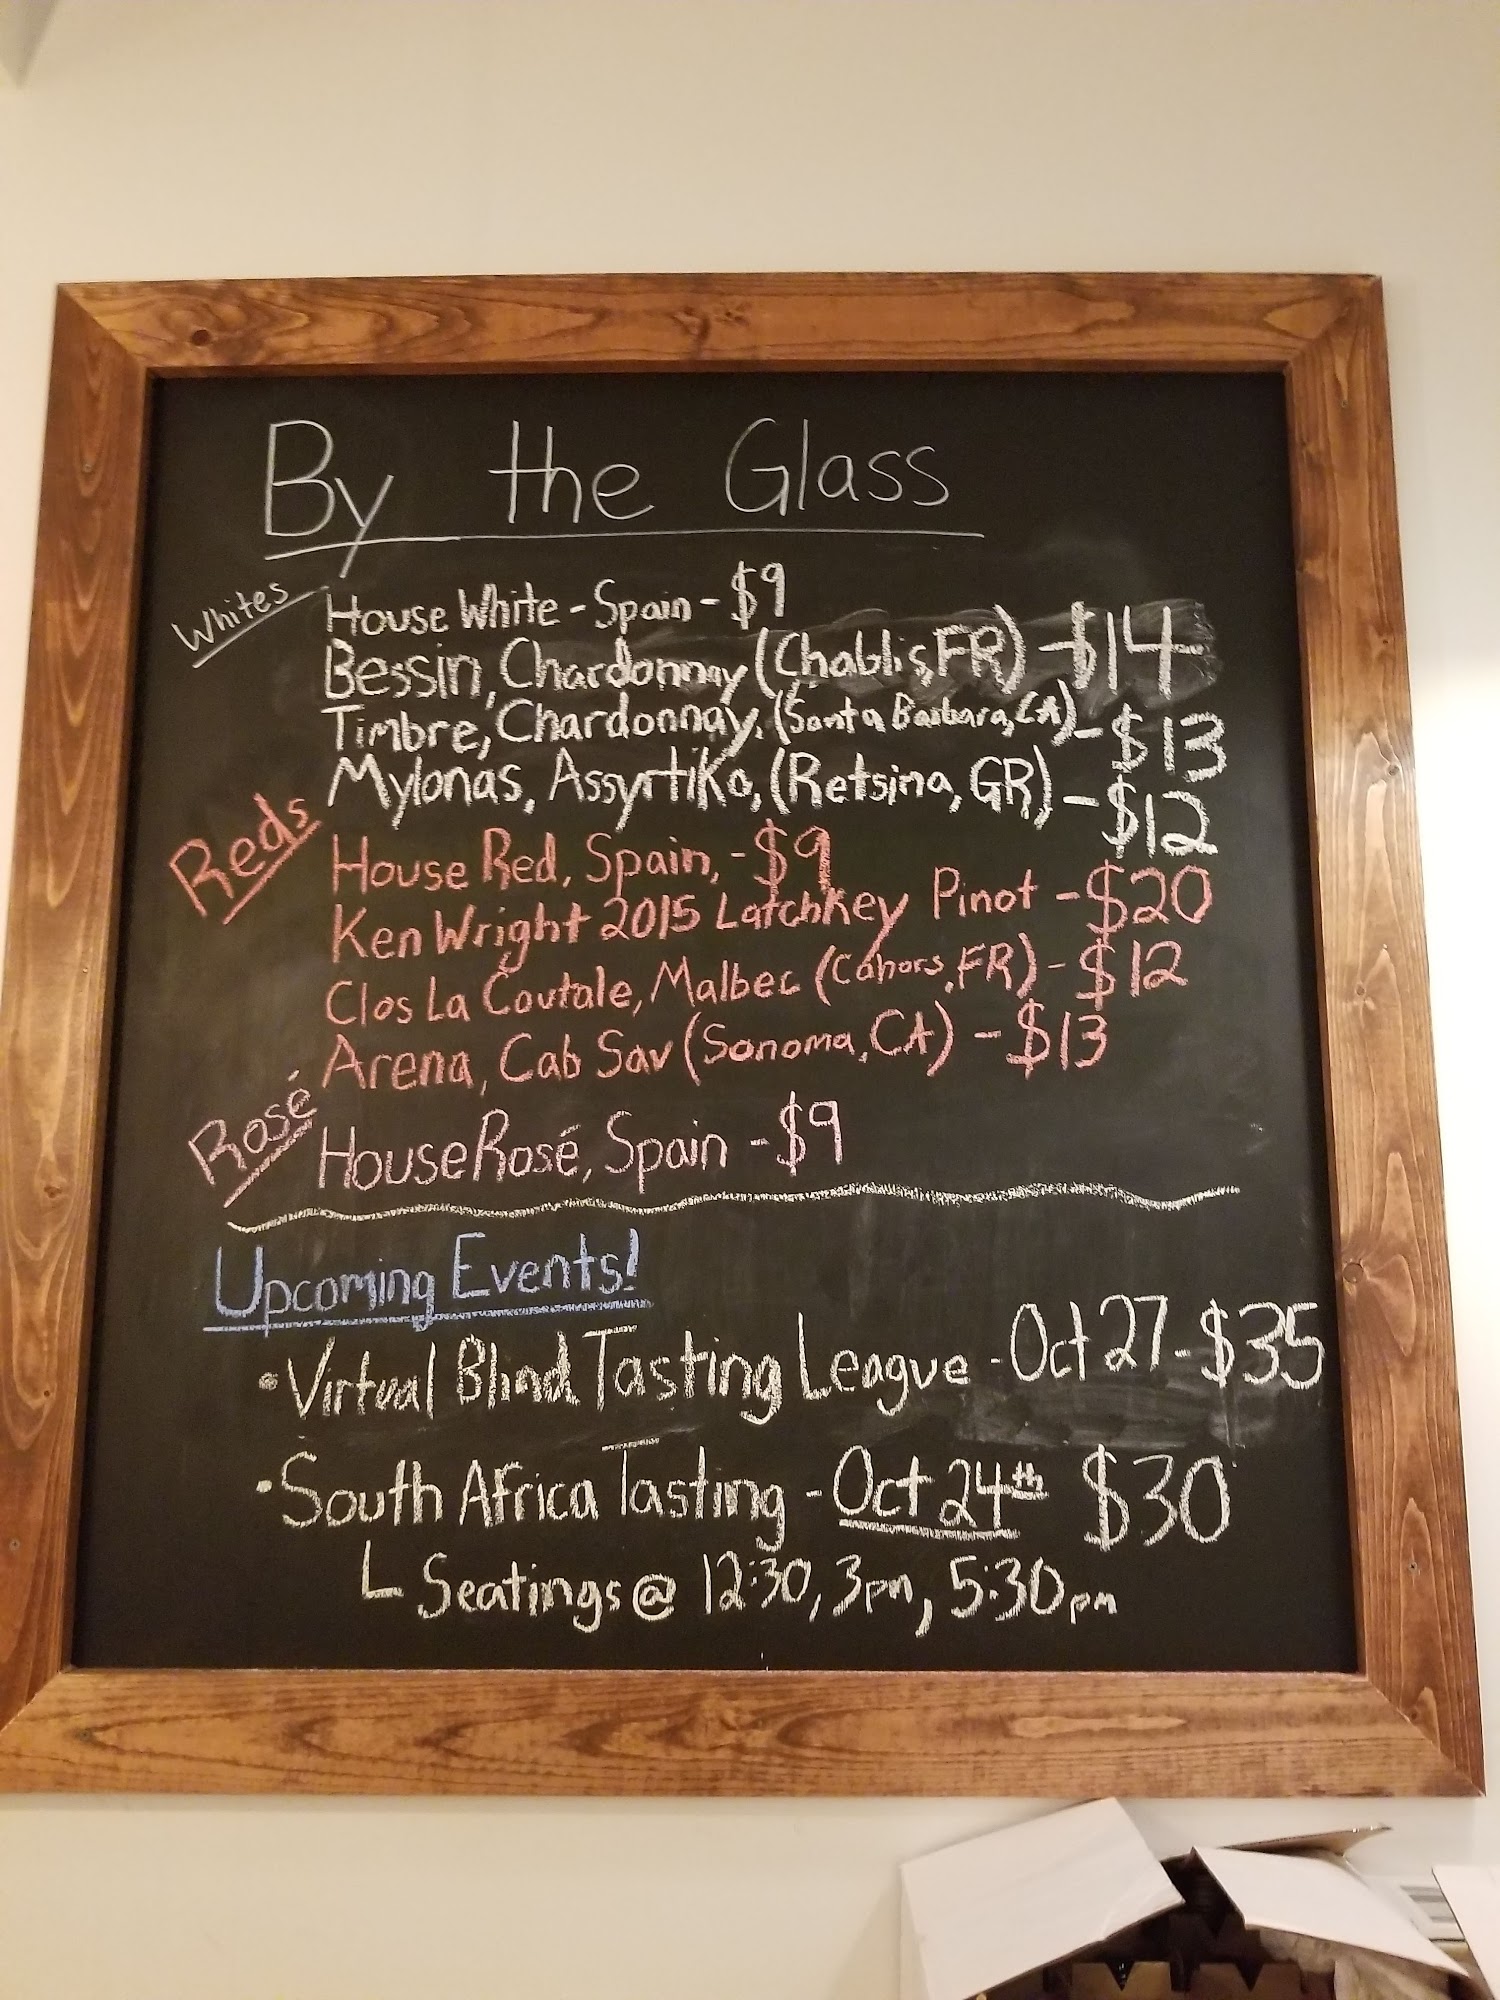 By the Glass
Whites
House White - Spain - $9
Bessin, Chardonnay (Chablis, FR) - $14
Timbre, Chardonnay, (Santa Barbara, CA) - $13
Mylonas, Assyrtiko, (Retsina, GR) - $12
Reds
House Red, Spain, - $9
Ken Wright 2015 Latchkey Pinot - $20
Clos La Coutale, Malbec (Cahors, FR) - $12
Arena, Cab Sav (Sonoma, CA) - $13
Rosé
House Rosé, Spain - $9
Upcoming Events!
• Virtual Blind Tasting League - Oct 27 - $35
• South Africa Tasting - Oct 24th $30
L Seatings @ 12:30, 3pm, 5:30pm